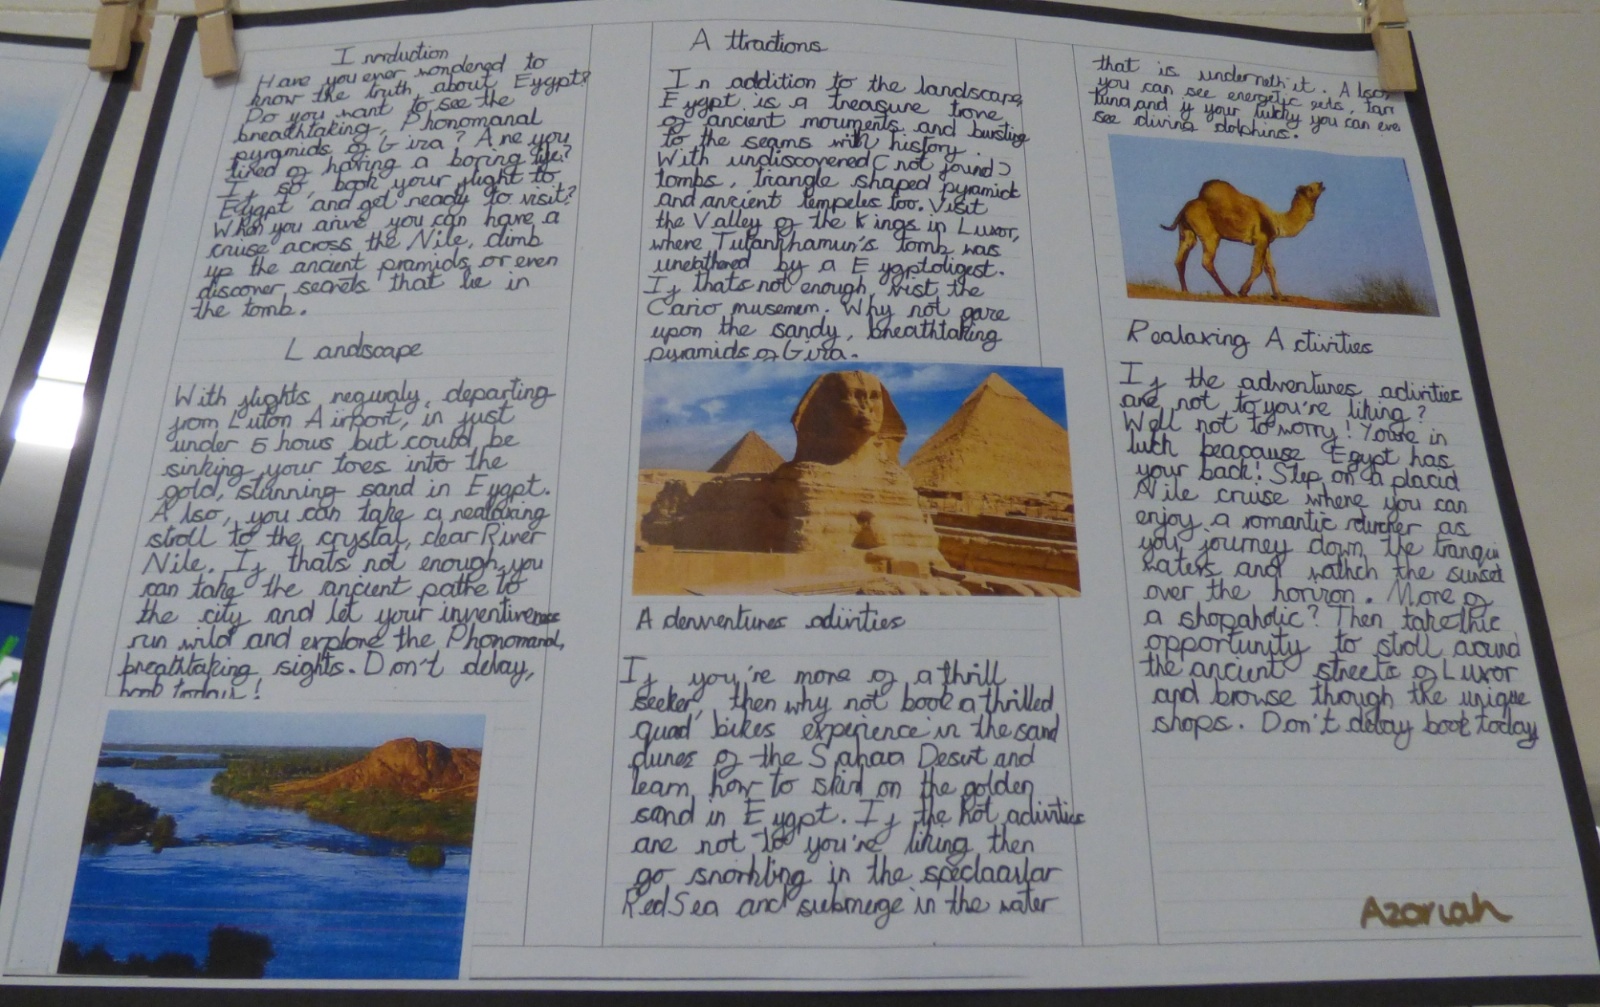 Inroduction
Have you ever wondered to
know the truth about Eygpt?
Do you want to see the
breathtaking, Phonomanal
pyramids of Gira? Are you
tired of having a boring life?
If so, book your flight to
Eygpt and get ready to visit?
When you arive you can have a
cruise across the Nile, climb
up the ancient pramids, or even
discover secrets that lie in
the tomb.
Landscape
With flights reguraly departing
from Luton Airport, in just
under 5 hours but could be
sinking your toes into the
gold, stunning sand in Eygpt.
Also, you can take a realaxing
stroll to the crystal, clear River
Nile. If thats not enough, you
can take the ancient paths to
the city and let your inventiveness
run wild and explore the Phonomanal,
breathtaking sights. Don't delay,
book today!
Attractions
In addition to the landscape,
Eygpt is a treasure trove
of ancient mouments and bursting
to the seams with history.
With undiscovered (not found)
tombs, triangle shaped pyramids
and ancient tempeles too. Visit
the Valley of the Kings in Luxor,
where Tutankhamun's tomb was
uneathered by a Eygptoligest.
If thats not enough, vist the
Cario musemem. Why not gaze
upon the sandy, breathtaking
pyramids of Gira.
Adenventures adivities
If you're more of a thrill
seeker, then why not book a thrilled
quad bikes experience in the sand
dunes of the Sahaa Desert and
learn how to skid on the golden
sand in Eygpt. If the hot adivities
are not to you're liking then
go snorkling in the speclaaular
Red Sea and submerge in the water
that is underneth it. Also,
you can see energetic eels, tan
tuna and if your lucky you can eve
see diving dolphins.
Realaxing Activities
If the adventures adivities
are not to you're liking?
Well not to worry! Youre in
luck beacause Egypt has
your back! Step on a placid
Nile cruise where you can
enjoy a romantic as
you journey down the tranqui
waters and wathch the sunset
over the horizon. More of
a shopaholic? Then take this
opportunity to stroll around
the ancient streets of Luxor
and browse through the unique
shops. Don't delay book today
Azariah